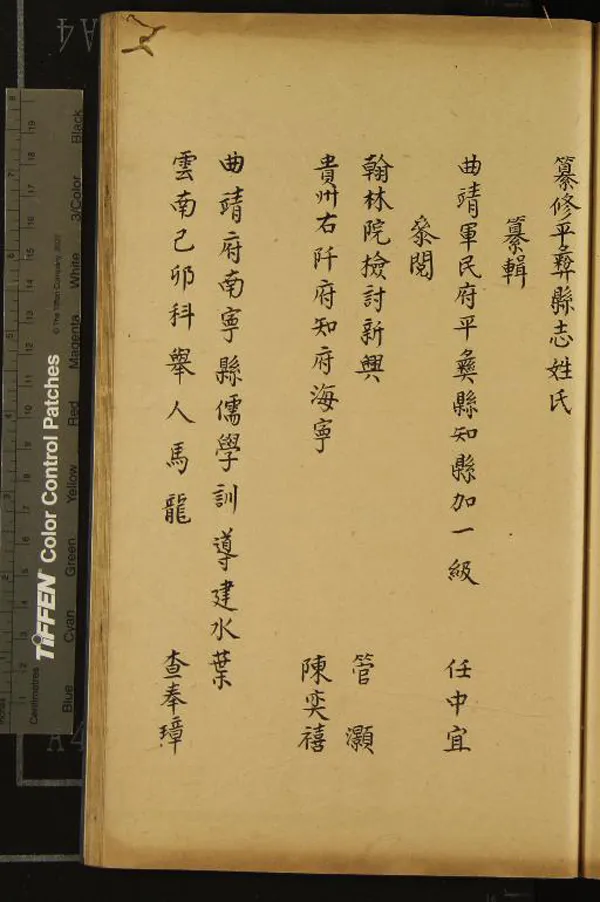 纂修平彝縣志姓氏
纂輯
曲靖軍民府平彝縣知縣加一級 任中宜
叅閱
翰林院檢討新興 管灝
貴州右阡府知府海寧 陳奕禧
曲靖府南寧縣儒學訓導建水葉
雲南己卯科舉人馬龍 查奉璋
A4
Centimetres
TIFFEN® Color Control Patches
© The Tiffen Company, 2007
Blue Cyan Green Yellow Red Magenta White 3/Color Black